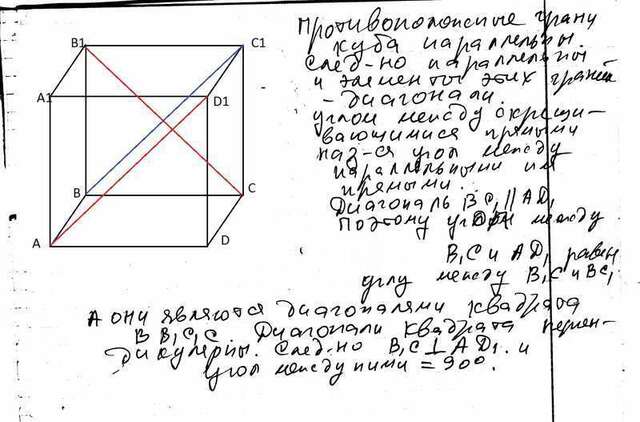 B1
C1
A1
D1
B
C
A
D
Противоположные грани
куба параллельны.
След-но параллельны
и элементы этих граней
- диагонали.
углом между скрещи-
вающимися прямыми
наз-ся угол между
параллельными им
прямыми.
Диагональ BC₁ || AD₁
Поэтому угол между
B₁C и AD₁ равен
углу между B₁C и BC₁
А они являются диагоналями квадрата
B B₁C₁C Диагонали квадрата перпен-
дикулярны. След-но B₁C ⊥ AD₁. и
угол между ними = 90°.